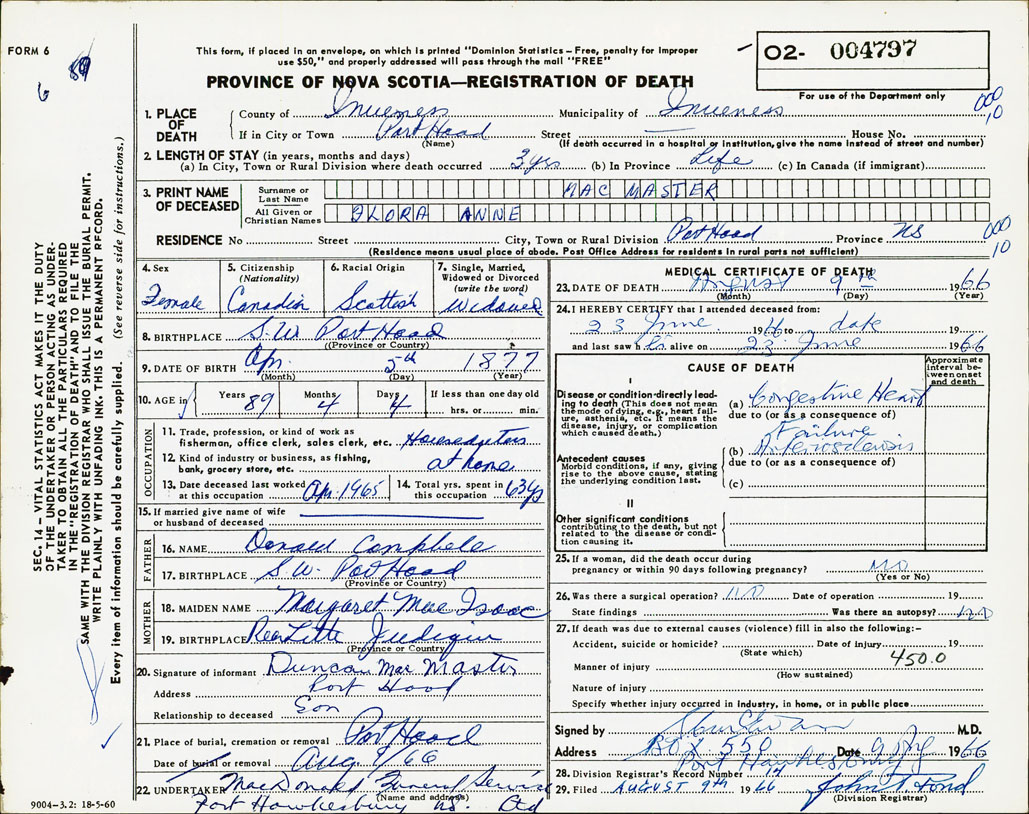 FORM 6
6
89
This form, if placed in an envelope, on which is printed "Dominion Statistics – Free, penalty for improper
use $50," and properly addressed will pass through the mail "FREE"
PROVINCE OF NOVA SCOTIA—REGISTRATION OF DEATH
02- 004797
For use of the Department only
000
10
1. PLACE OF DEATH
County of Inverness Municipality of Inverness
If in City or Town Port Hood Street — House No.
(Name) (If death occurred in a hospital or institution, give the name instead of street and number)
2. LENGTH OF STAY (in years, months and days)
(a) In City, Town or Rural Division where death occurred 3 yrs (b) In Province Life (c) In Canada (if immigrant)
3. PRINT NAME OF DECEASED
Surname or Last Name MAC MASTER
All Given or Christian Names FLORA ANNE
RESIDENCE No Street City, Town or Rural Division Port Hood Province NS
000
10
(Residence means usual place of abode. Post Office Address for residents in rural parts not sufficient)
SEC. 14 – VITAL STATISTICS ACT MAKES IT THE DUTY
OF THE UNDERTAKER OR PERSON ACTING AS UNDER-
TAKER TO OBTAIN ALL THE PARTICULARS REQUIRED
IN THE "REGISTRATION OF DEATH" AND TO FILE THE
SAME WITH THE DIVISION REGISTRAR WHO SHALL ISSUE THE BURIAL PERMIT.
WRITE PLAINLY WITH UNFADING INK. THIS IS A PERMANENT RECORD.
Every item of information should be carefully supplied. (See reverse side for instructions.)
4. Sex
Female
5. Citizenship (Nationality)
Canadian
6. Racial Origin
Scottish
7. Single, Married, Widowed or Divorced (write the word)
Widowed
8. BIRTHPLACE S.W. Port Hood
(Province or Country)
9. DATE OF BIRTH Apr. 5th 1877
(Month) (Day) (Year)
10. AGE in Years 89 Months 4 Days 4 If less than one day old
hrs. or min.
OCCUPATION
11. Trade, profession, or kind of work as
fisherman, office clerk, sales clerk, etc.
12. Kind of industry or business, as fishing,
bank, grocery store, etc. at home
13. Date deceased last worked at this occupation Apr. 1965
14. Total yrs. spent in this occupation 63 yrs
15. If married give name of wife
or husband of deceased
FATHER
16. NAME Donald Campbell
17. BIRTHPLACE S.W. Port Hood
(Province or Country)
MOTHER
18. MAIDEN NAME Margaret Mac Isaac
19. BIRTHPLACE Rear Little Judique
(Province or Country)
20. Signature of informant Duncan Mac Master
Address Port Hood
Relationship to deceased Son
21. Place of burial, cremation or removal Port Hood
Date of burial or removal Aug 9/66
22. UNDERTAKER MacDonald Funeral Service
(Name and address)
Port Hawkesbury NS. Ltd
9004-3.2: 18-5-60
MEDICAL CERTIFICATE OF DEATH
23. DATE OF DEATH August 9th 1966
(Month) (Day) (Year)
24. I HEREBY CERTIFY that I attended deceased from:
23 June 1966 to date 19
and last saw her alive on 23 June 1966
CAUSE OF DEATH
Approximate interval between onset and death
I
Disease or condition directly leading to death (This does not mean the mode of dying, e.g., heart failure, asthenia, etc. It means the disease, injury, or complication which caused death.)
(a) Congestive Heart
due to (or as a consequence of)
Failure
Antecedent causes
Morbid conditions, if any, giving rise to the above cause, stating the underlying condition last.
(b) Arteriosclerosis
due to (or as a consequence of)
(c)
II
Other significant conditions
contributing to the death, but not related to the disease or condition causing it.
25. If a woman, did the death occur during
pregnancy or within 90 days following pregnancy? NO
(Yes or No)
26. Was there a surgical operation? NO Date of operation 19
State findings Was there an autopsy? NO
27. If death was due to external causes (violence) fill in also the following:-
Accident, suicide or homicide? Date of injury 19
(State which) 450.0
Manner of injury
(How sustained)
Nature of injury
Specify whether injury occurred in industry, in home, or in public place
Signed by M.D.
Address BOX 550 Date 9 Aug 1966
Port Hawkesbury
28. Division Registrar's Record Number 14
29. Filed AUGUST 9th 1966 John A. Pond
(Division Registrar)